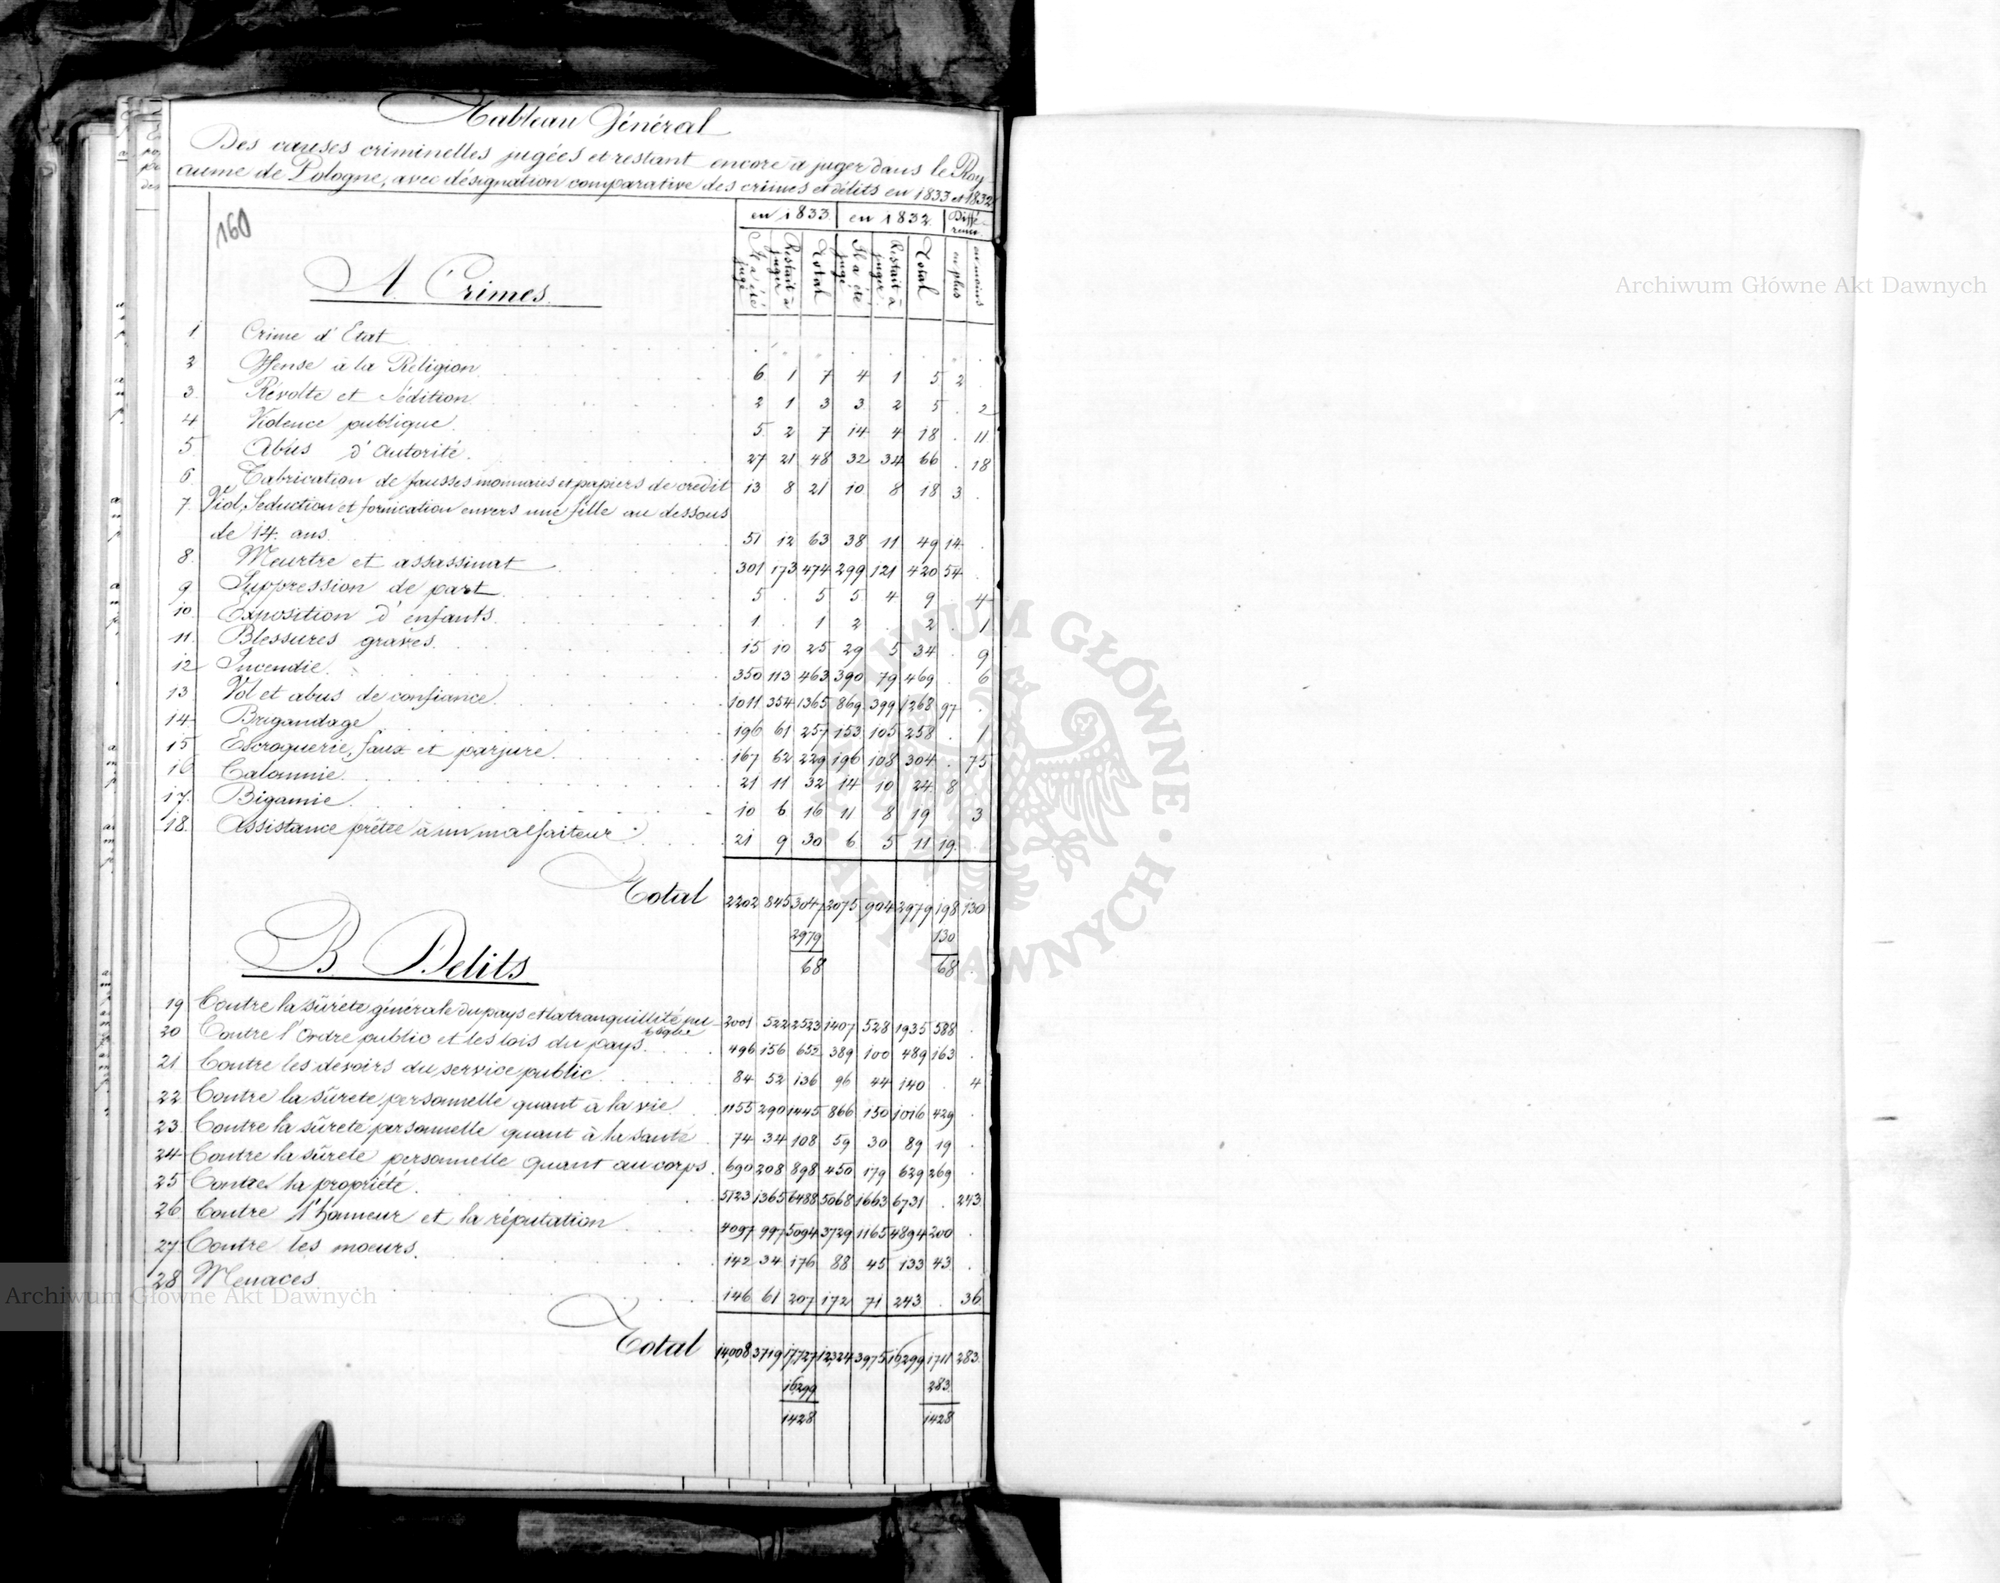 Tableau Général
Des causes criminelles jugées et restant encore à juger dans le Roy-
aume de Pologne, avec désignation comparative des crimes et délits en 1833 et 1832
160
en 1833 en 1832 Diffé-
rence
Il a été jugé Restait à juger Total Il a été jugé Restait à juger Total en plus en moins
A. Crimes.
1 Crime d'Etat
2 Offense à la Religion 6 1 7 4 1 5 2 .
3. Révolte et Sédition 2 1 3 3 2 5 . 2
4 Violence publique. 5 2 7 14 4 18 . 11
5 Abus d'autorité. 27 21 48 32 34 66 . 18
6 Fabrication de fausses monnaies et papiers de credit 13 8 21 10 8 18 3 .
7. Viol, Seduction et fornication envers une fille au dessous
de 14. ans. 51 12 63 38 11 49 14 .
8. Meurtre et assassinat 301 173 474 299 121 420 54 .
9 Suppression de part 5 . 5 5 4 9 . 4
10. Exposition d'enfants. 1 . 1 2 . 2 . 1
11. Blessures graves. 15 10 25 29 5 34 . 9
12 Incendie. 350 113 463 390 79 469 . 6
13 Vol et abus de confiance 1011 354 1365 869 399 1268 97 .
14 Brigandage 196 61 257 153 105 258 . 1
15 Escroquerie, faux et parjure. 167 62 229 196 108 304 . 75
16 Calomnie. 21 11 32 14 10 24 8
17. Bigamie. 10 6 16 11 8 19 3
18. Assistance prêtée à un malfaiteur. 21 9 30 6 5 11 19.
Total 2202 845 3047 2075 904 2979 198 130
2979 130
68 68
B Delits
19 Contre la sûreté générale du pays et la tranquillité pu-
blique 2001 522 2523 1407 528 1935 588 .
20 Contre l'Ordre public et les lois du pays. 496 156 652 389 100 489 163 .
21 Contre les devoirs du service public. 84 52 136 96 44 140 . 4
22 Contre la sûreté personnelle quant à la vie 1155 290 1445 866 150 1016 429 .
23 Contre la sûreté personnelle quant à la santé 74 34 108 59 30 89 19 .
24 Contre la sûreté personnelle quant au corps. 690 208 898 450 179 629 269 .
25 Contre la propriété. 5123 1365 6488 5068 1663 6731 . 243
26 Contre l'honneur et la réputation 4097 997 5094 3729 1165 4894 200 .
27 Contre les moeurs. 142 34 176 88 45 133 43 .
28 Menaces 146 61 207 172 71 243 . 36
Total 14,008 3719 17,727 12,324 3975 16,299 1711 283.
16299 283.
1428 1428
Archiwum Główne Akt Dawnych
Archiwum Główne Akt Dawnych
ARCHIWUM GŁÓWNE · AKT DAWNYCH ·